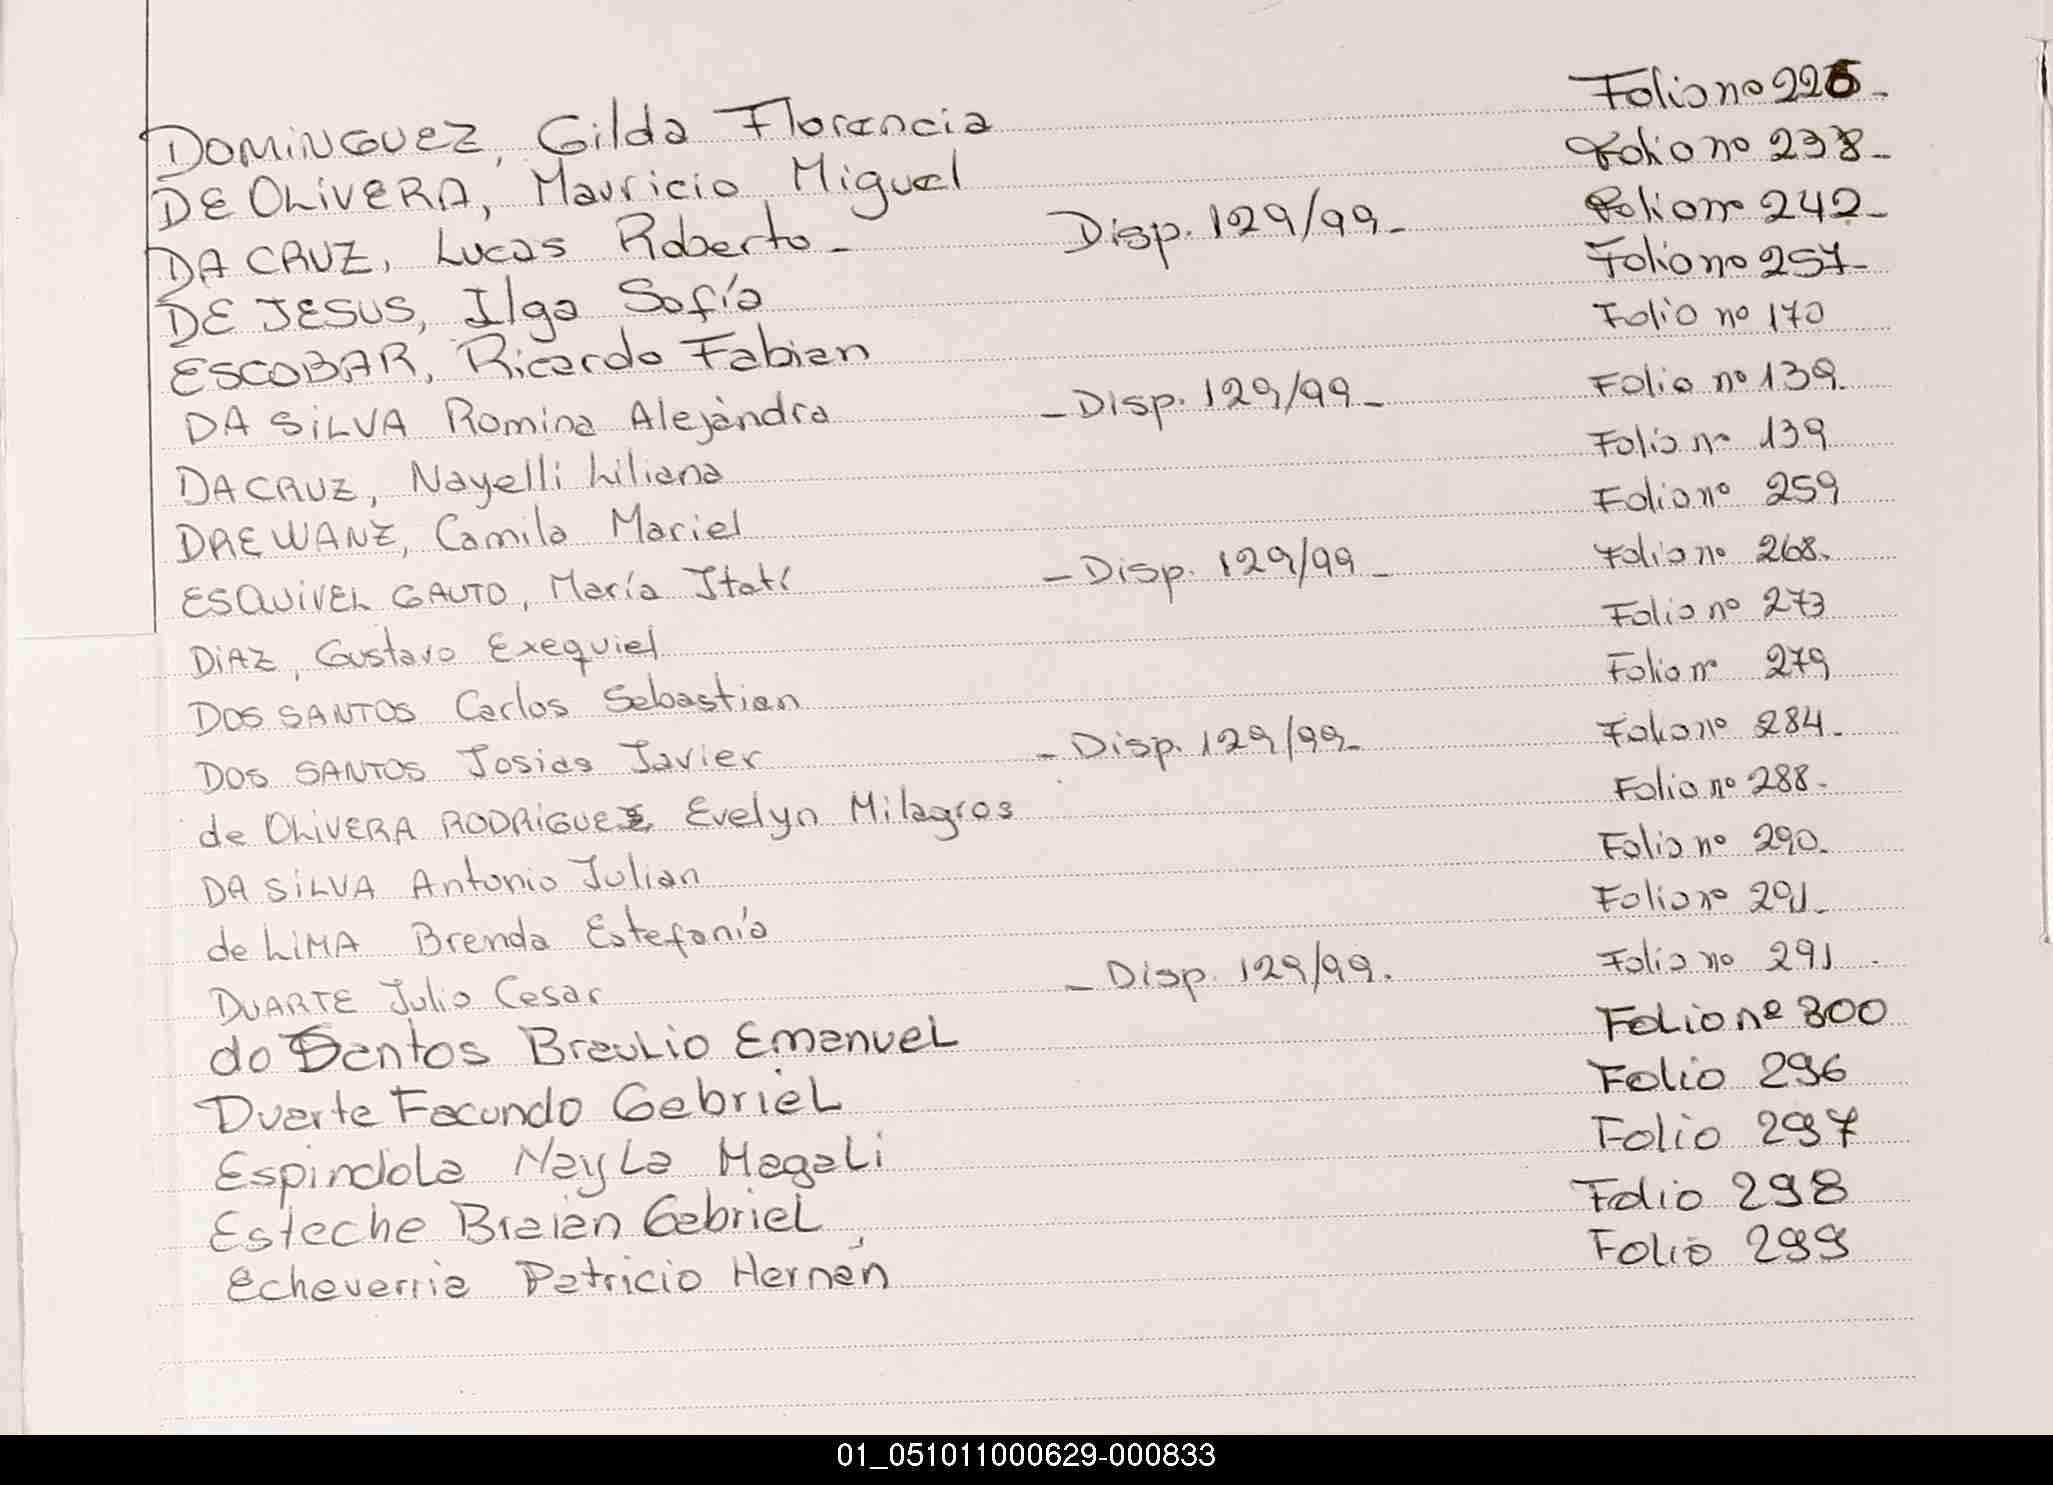 DOMINGUEZ, Gilda Florencia Folio nº 226-
DE OLIVERA, Mauricio Miguel Folio nº 238-
DA CRUZ, Lucas Roberto- Disp. 129/99- Folio nº 242-
DE JESUS, Ilga Sofía Folio nº 257-
ESCOBAR, Ricardo Fabian Folio nº 170
DA SILVA Romina Alejàndra -Disp. 129/99- Folio nº 139-
DA CRUZ, Nayelli Liliana Folio nº 139
DREWANZ, Camila Mariel Folio nº 259
ESQUIVEL GAUTO, María Itatí -Disp. 129/99- Folio nº 268.
DIAZ, Gustavo Exequiel Folio nº 273
DOS SANTOS Carlos Sebastian Folio nº 279
DOS SANTOS Josias Javier -Disp. 129/99- Folio nº 284.
de OLIVERA RODRIGUEZ Evelyn Milagros Folio nº 288.
DA SILVA Antonio Julian Folio nº 290.
de LIMA Brenda Estefanía Folio nº 291.
DUARTE Julio Cesar -Disp. 129/99. Folio nº 291.
do Santos Braulio Emanuel Folio nº 300
Duarte Facundo Gabriel Folio 296
Espindola Nayla Magali Folio 297
Esteche Braian Gabriel Folio 298
Echeverria Patricio Hernán Folio 299
01_051011000629-000833